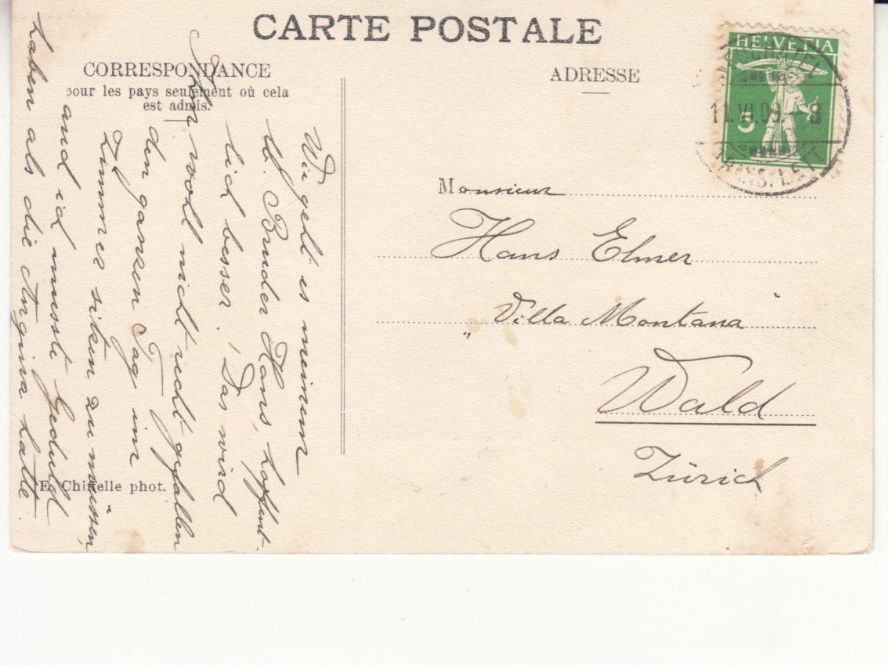 CARTE POSTALE
CORRESPONDANCE
pour les pays seulement où cela
est admis.
ADRESSE
HELVETIA
5
11.VI.09.–8
Monsieur
Hans Elmer
„Villa Montana"
Wald
Zürich
Wie geht es meinem
lb. Bruder Hans, hoffent-
lich besser! Das wird
Ihm wohl nicht recht gefallen
den ganzen Tag im
Zimmer sitzen zu müssen,
auch ich musste Geduld
haben als die Angina hatte.
E. Chiffelle phot.